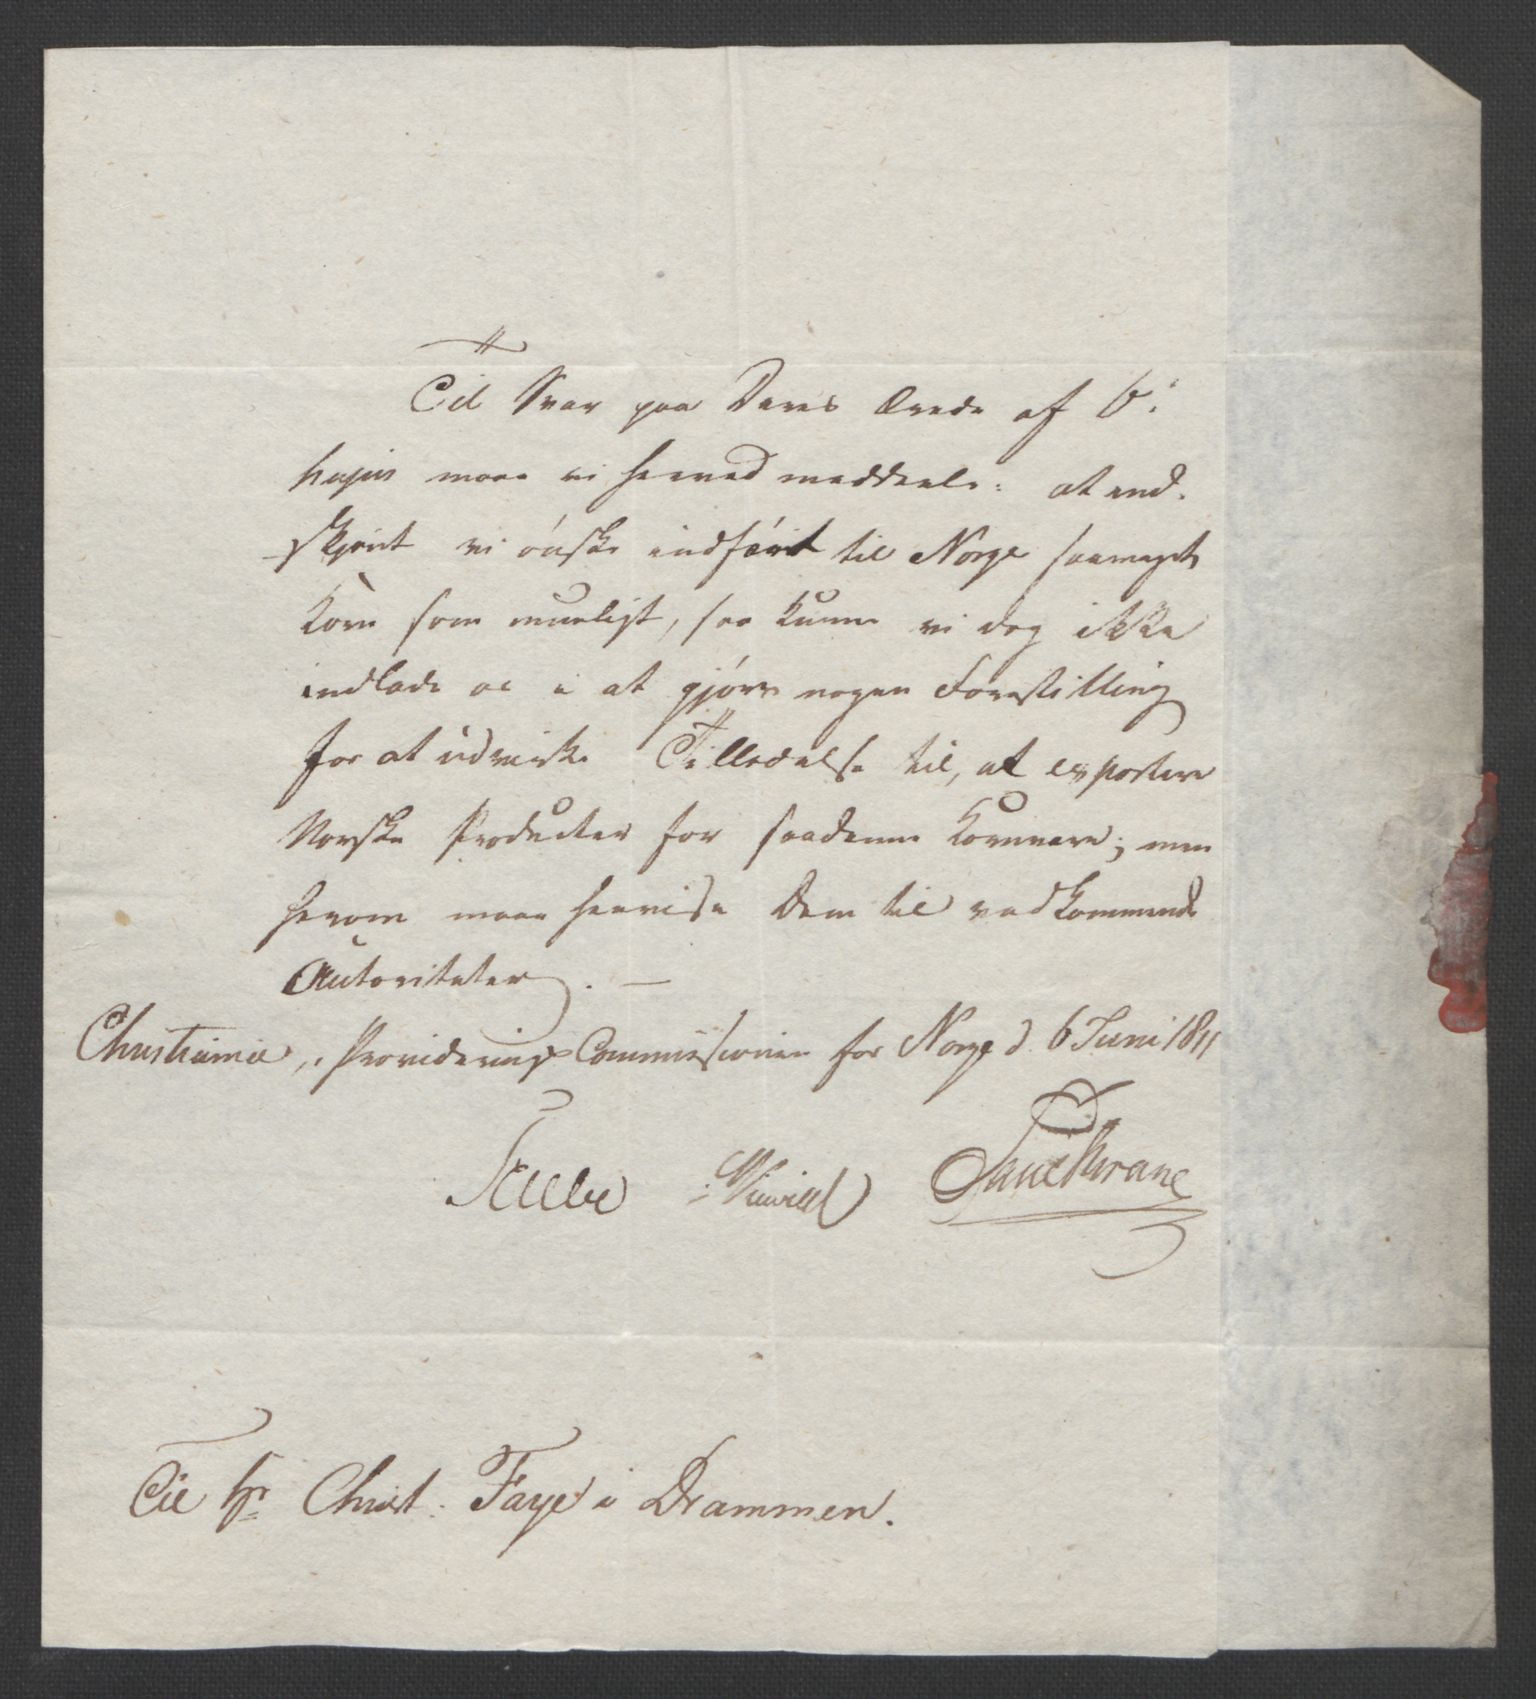 Til Svar paa Deres Ærede af 6.
hujus maae vi herved meddeele: at end-
skjønt vi ønske indført til Norge saameget
Korn som mueligt, saa kunne vi dog ikke
indlade os i at gjøre nogen Forestilling
for at udvirke Tilladelse til, at exportere
Norske Producter for saadanne Kornvare; men
herom maae henvise Dem til vedkommende
Autoriteter. —
Christiania, i Provideringscommissionen for Norge d. 6 Juni 1811
Treschow
Til Hr Christ. Faye i Drammen.